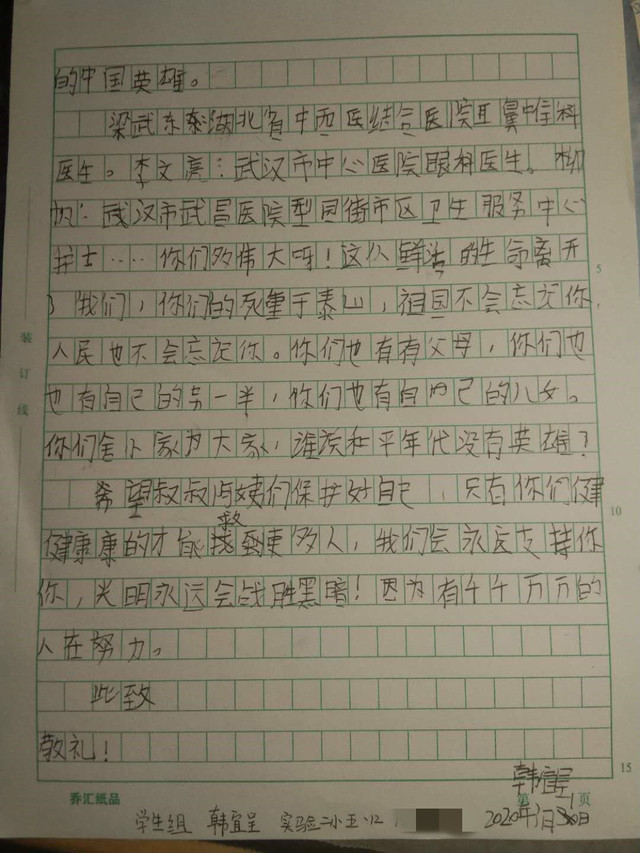 的中国英雄。
梁武东:湖北省中西医结合医院耳鼻喉科
医生。李文亮:武汉市中心医院眼科医生。柳
帆:武汉市武昌医院梨园街市区卫生服务中心
护士……你们多伟大呀!这么鲜活的生命离开
了我们,你们的死重于泰山,祖国不会忘记你,
人民也不会忘记你。你们也有有父母,你们也
也有自己的另一半,你们也有自己的儿女。
你们舍小家为大家,谁说和平年代没有英雄?
希望叔叔阿姨们保护好自己,只有你们健
健康康的才能救更多人,我们会永远支持你
你,光明永远会战胜黑暗!因为有千千万万的
人在努力。
此致
敬礼!
韩宜呈
装订线
5
10
15
乔汇纸品
第1页
学生组 韩宜呈 实验二小五·12
2020年 月30日